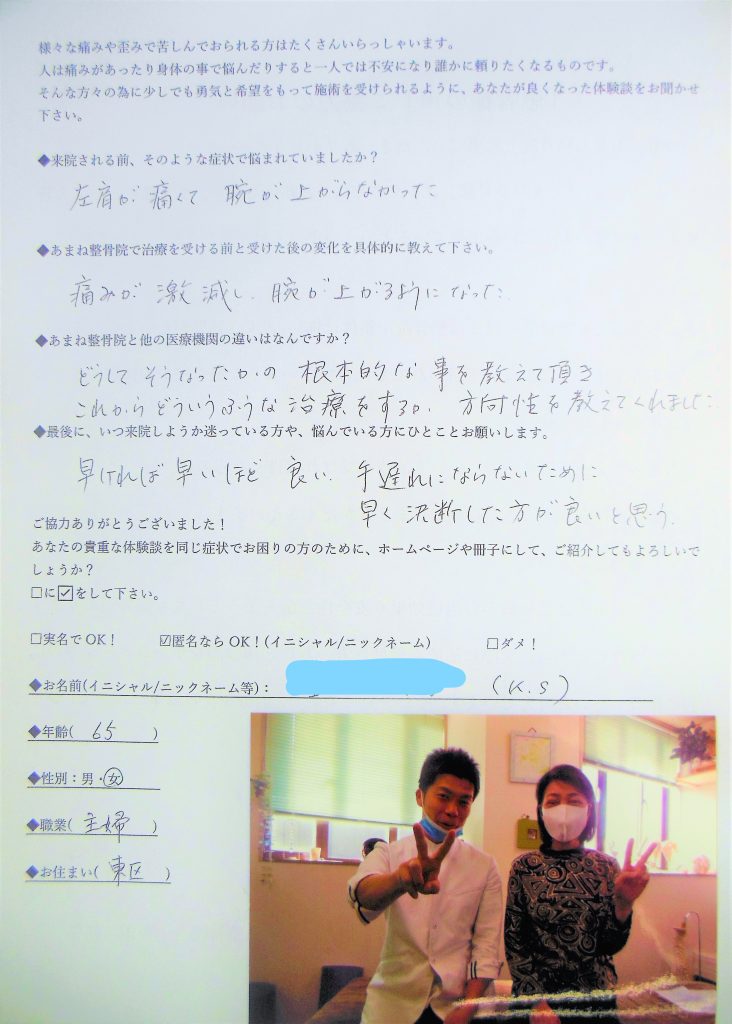 様々な痛みや歪みで苦しんでおられる方はたくさんいらっしゃいます。
人は痛みがあったり身体の事で悩んだりすると一人では不安になり誰かに頼りたくなるものです。
そんな方々の為に少しでも勇気と希望をもって施術を受けられるように、あなたが良くなった体験談をお聞かせ
下さい。
◆来院される前、そのような症状で悩まれていましたか？
左肩が痛くて 腕が上がらなかった
◆あまね整骨院で治療を受ける前と受けた後の変化を具体的に教えて下さい。
痛みが激減し、腕が上がるようになった。
◆あまね整骨院と他の医療機関の違いはなんですか？
どうしてそうなったかの根本的な事を教えて頂き
これからどういうふうな治療をするか、方向性を教えてくれました。
◆最後に、いつ来院しようか迷っている方や、悩んでいる方にひとことお願いします。
早ければ早いほど良い、手遅れにならないために
早く決断した方が良いと思う。
ご協力ありがとうございました！
あなたの貴重な体験談を同じ症状でお困りの方のために、ホームページや冊子にして、ご紹介してもよろしいで
しょうか？
□に☑をして下さい。
□実名でOK！ ☑匿名ならOK！(イニシャル/ニックネーム) □ダメ！
◆お名前(イニシャル/ニックネーム等)： (K.S)
◆年齢( 65 )
◆性別：男・女
◆職業( 主婦 )
◆お住まい( 東区 )